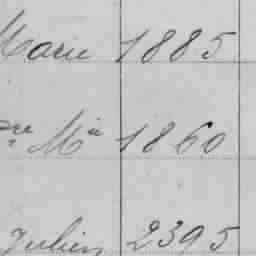 Marie 1885
Mie 1860
Julien 2395